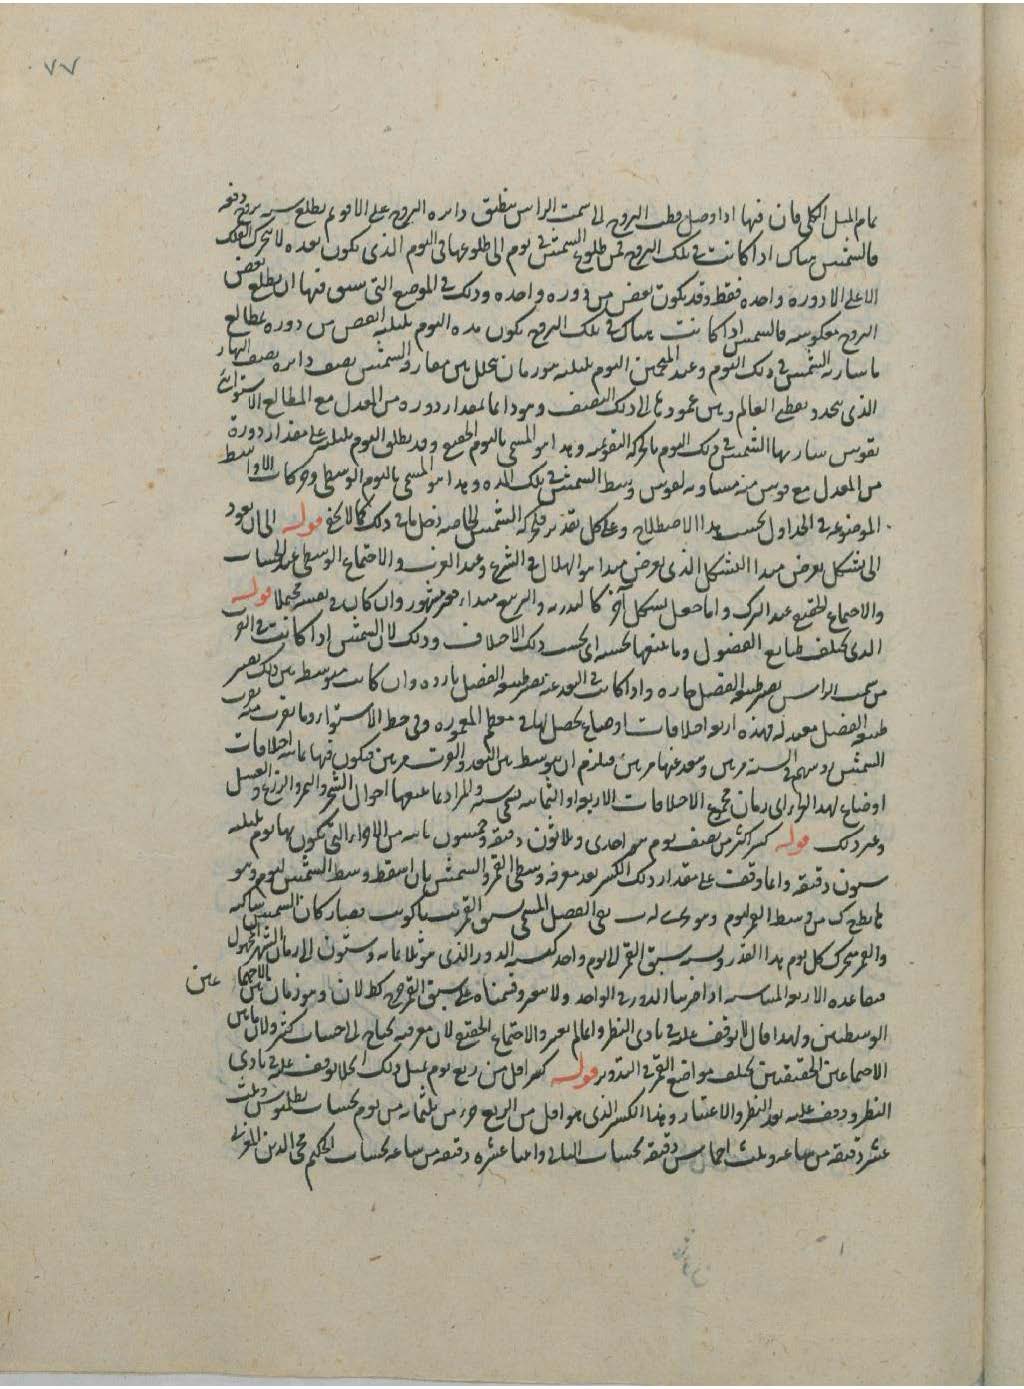 ٧٧
تمام الميل الكلي فان فيها اذا وصل قطب البروج الى سمت الراس ينطبق دائرة البروج على الافق ثم يطلع ستة بروج دفعة
فالشمس هناك اذا كانت في تلك البروج فمن طلوع الشمس في يوم الى طلوعها في اليوم الذي يكون بعده لا يتحرك الفلك
الاعلى الا دورة واحدة فقط وقد يكون بعض من دورة واحدة وذلك في المواضع التي سبق فيها ان يطلع بعض
البروج معكوسة فالشمس اذا كانت هناك في تلك البروج يكون مدة اليوم بليلته انقص من دورة بمطالع
ما سارته الشمس في ذلك اليوم وعند المنجمين اليوم بليلته هو زمان يتخلل بين مفارقة الشمس نصف دائرة نصف النهار
الذي يتحدد بقطبي العالم وبين عودتها الى ذلك النصف وهو دائما بمقدار دورة من المعدل مع المطالع الاستوائية
لقوس سارتها الشمس في ذلك اليوم بالحركة التقويمية وهذا هو المسمى باليوم الحقيقي وقد يطلق اليوم بليلته على مقدار دورة
من المعدل مع قوس منه مساوية لقوس وسط الشمس في تلك المدة وهذا هو المسمى باليوم الوسطي وحركات الاوساط
الموضوعة في الجداول بحسب هذا الاصطلاح وعلى كل تقدير فلحركة الشمس الخاصة دخل ما في ذلك كما لا يخفى قوله الى ان يعود
الى تشكل يعرض مبدأ التشكل الذي يعرض مبدأ هو الهلال في الشرع وعند العرب والاجتماع الوسطي عند الحساب
والاجتماع الحقيقي عند الترك واما جعل تشكل آخر كالبدرية والتربيع مبداء فغير مشهور وان كان في نفسه محتملا قوله
الذي يختلف طبايع الفصول وما يتبعها بحسبه اي بحسب ذلك الاختلاف وذلك لان الشمس اذا كانت في القرب
من سمت الراس يصير طبيعة الفصل حارة واذا كانت في البعد عنه يصير طبيعة الفصل باردة وان كانت متوسطة بين ذلك يصير
طبيعة الفصل معتدلة فهذه اربعة اختلافات اوضاع يحصل لها في معظم المعمورة وفي خط الاستواء وما يقرب منه يقرب
الشمس من سمتهم في السنة مرتين وتبعد عنها مرتين فيلزم ان يتوسط بين البعد والقرب مرتين فيكون فيها ثمانية اختلافات
اوضاع لهذا الجرم اي زمان مجموع الاختلافات الاربعة او الثمانية يسمى سنة والمراد بما يتبعها احوال الشجر والثمر والزرع والعسل
وغير ذلك قوله كسر اكثر من نصف يوم هو احدى وثلاثون دقيقة وخمسون ثانية من الاجزاء التي يكون بها يوم بليلته
ستون دقيقة وانما وقفت على مقدار ذلك الكسر بعد معرفة وسطي القمر والشمس بان اسقط وسط الشمس ليوم وهو
من وسط القمر ليوم وهو بقي الفضل المسمى سبق القمر فصار كأن الشمس ساكنة
والقمر يتحرك كل يوم بهذا القدر ونسبة سبق القمر الى يوم واحد كنسبة الدور الذي هو ثلثمائة وستون الى زمان الشهر المجهول
فبقاعدة الاربعة المتناسبة اذا ضربنا الدور في الواحد ولا يتغير وقسمناه على سبق القمر خرج كط لا ن وهو زمان بين الاجتماعين
الوسطيين ولهذا قال لا يوقف عليه في بادى النظر وانما لم يعتبر والاجتماع الحقيقي لان معرفته يحتاج الى حساب كثير ولان ما بين
الاجتماعين الحقيقيين يختلف مواضع القمر في التدوير قوله كسر اقل من ربع يوم بمثل ذلك الحال لا يوقف عليه في بادى
النظر ووقف عليه بعد النظر والاعتبار وهذا الكسر الذي هو اقل من الربع جزء من ثلثمائة من يوم بحساب بطلميوس وثلث
عشر دقيقة من ساعة وثلثة اخماس دقيقة بحساب التباني واثنتا عشرة دقيقة من ساعة بحساب الحكيم محي الدين المغربي